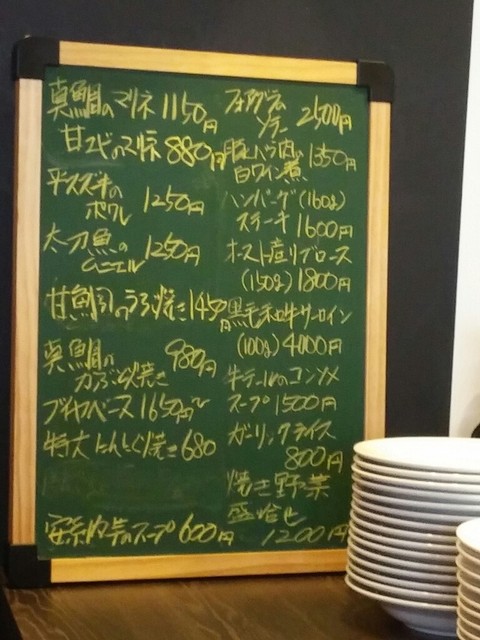 真鯛のマリネ 1150円
甘エビのマリネ 880円
平スズキの
ポワレ 1250円
太刀魚の
ムニエル 1250円
甘鯛のうろこ焼き 1450円
真鯛の
カブト焼き 980円
ブイヤベース 1650円～
特大にんにく焼き 680
安納芋のスープ 600円
フォアグラ
ソテー 2500円
豚バラ肉の
白ワイン煮 1350円
ハンバーグ(160g)
ステーキ 1600円
オースト産リブロース
(150g) 1800円
黒毛和牛サーロイン
(100g) 4000円
牛テールのコンソメ
スープ 1500円
ガーリックライス
800円
焼き野菜
盛合せ
1200円